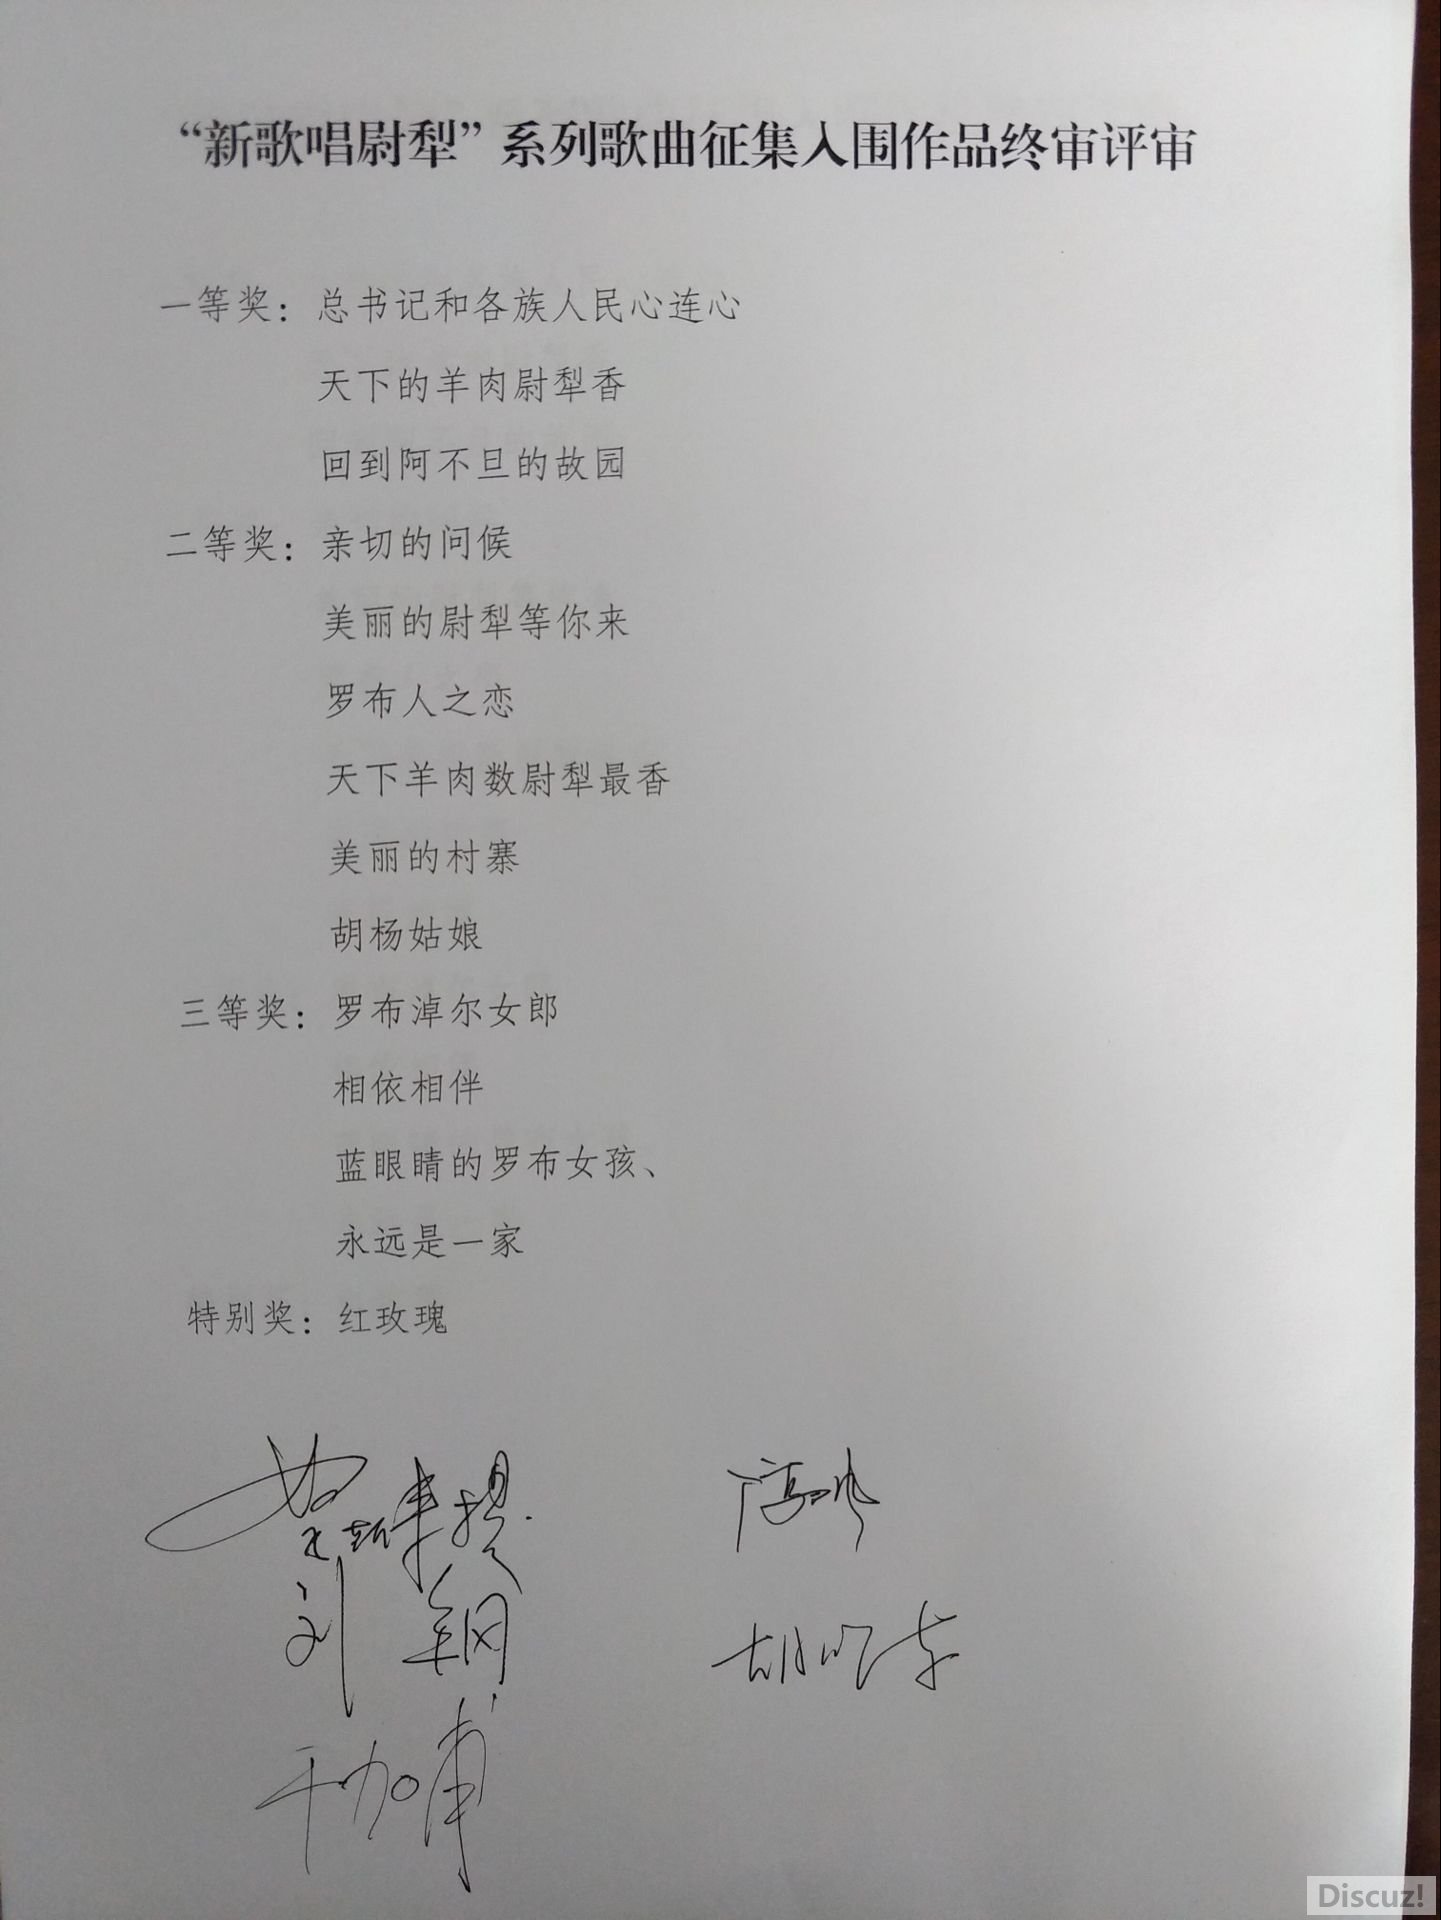 “新歌唱尉犁”系列歌曲征集入围作品终审评审
一等奖：总书记和各族人民心连心
天下的羊肉尉犁香
回到阿不旦的故园
二等奖：亲切的问候
美丽的尉犁等你来
罗布人之恋
天下羊肉数尉犁最香
美丽的村寨
胡杨姑娘
三等奖：罗布淖尔女郎
相依相伴
蓝眼睛的罗布女孩、
永远是一家
特别奖：红玫瑰
刘钢
Discuz!